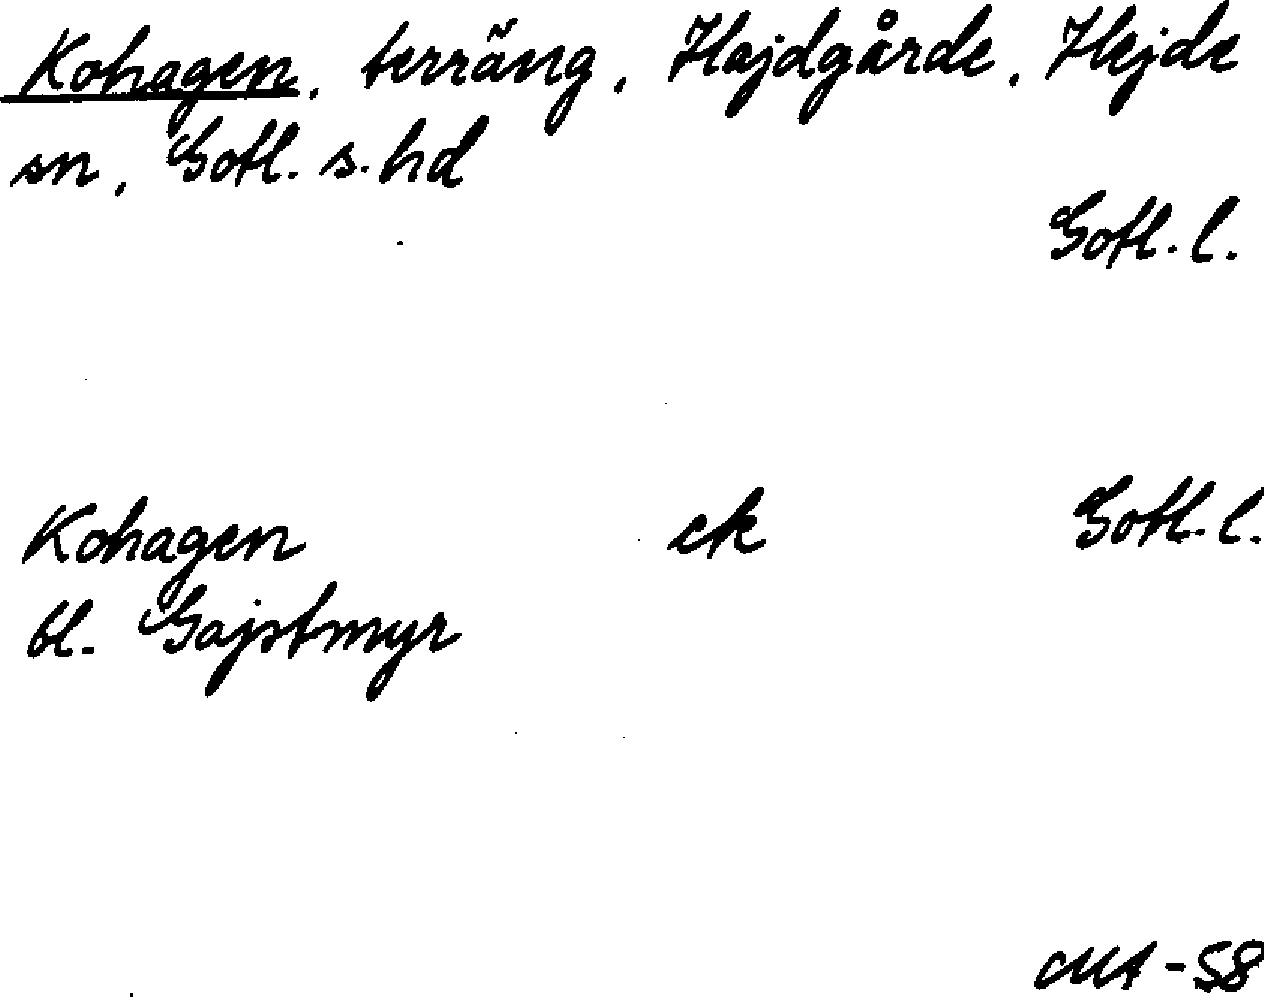 Kohagen, terräng, Hajdgårde, Hejde
sn, Gotl. s. hd
Gotl. l.
Kohagen ek Gotl. l.
bl. Gajstmyr
-58